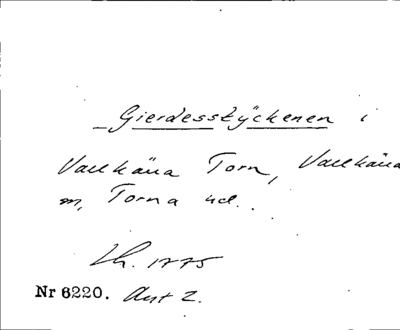 Gierdesstÿckenen i
Vallkärra Torn, Vallkärra
m, Torna hd.
Lh. 1775
Nr 6220. Akt 2.